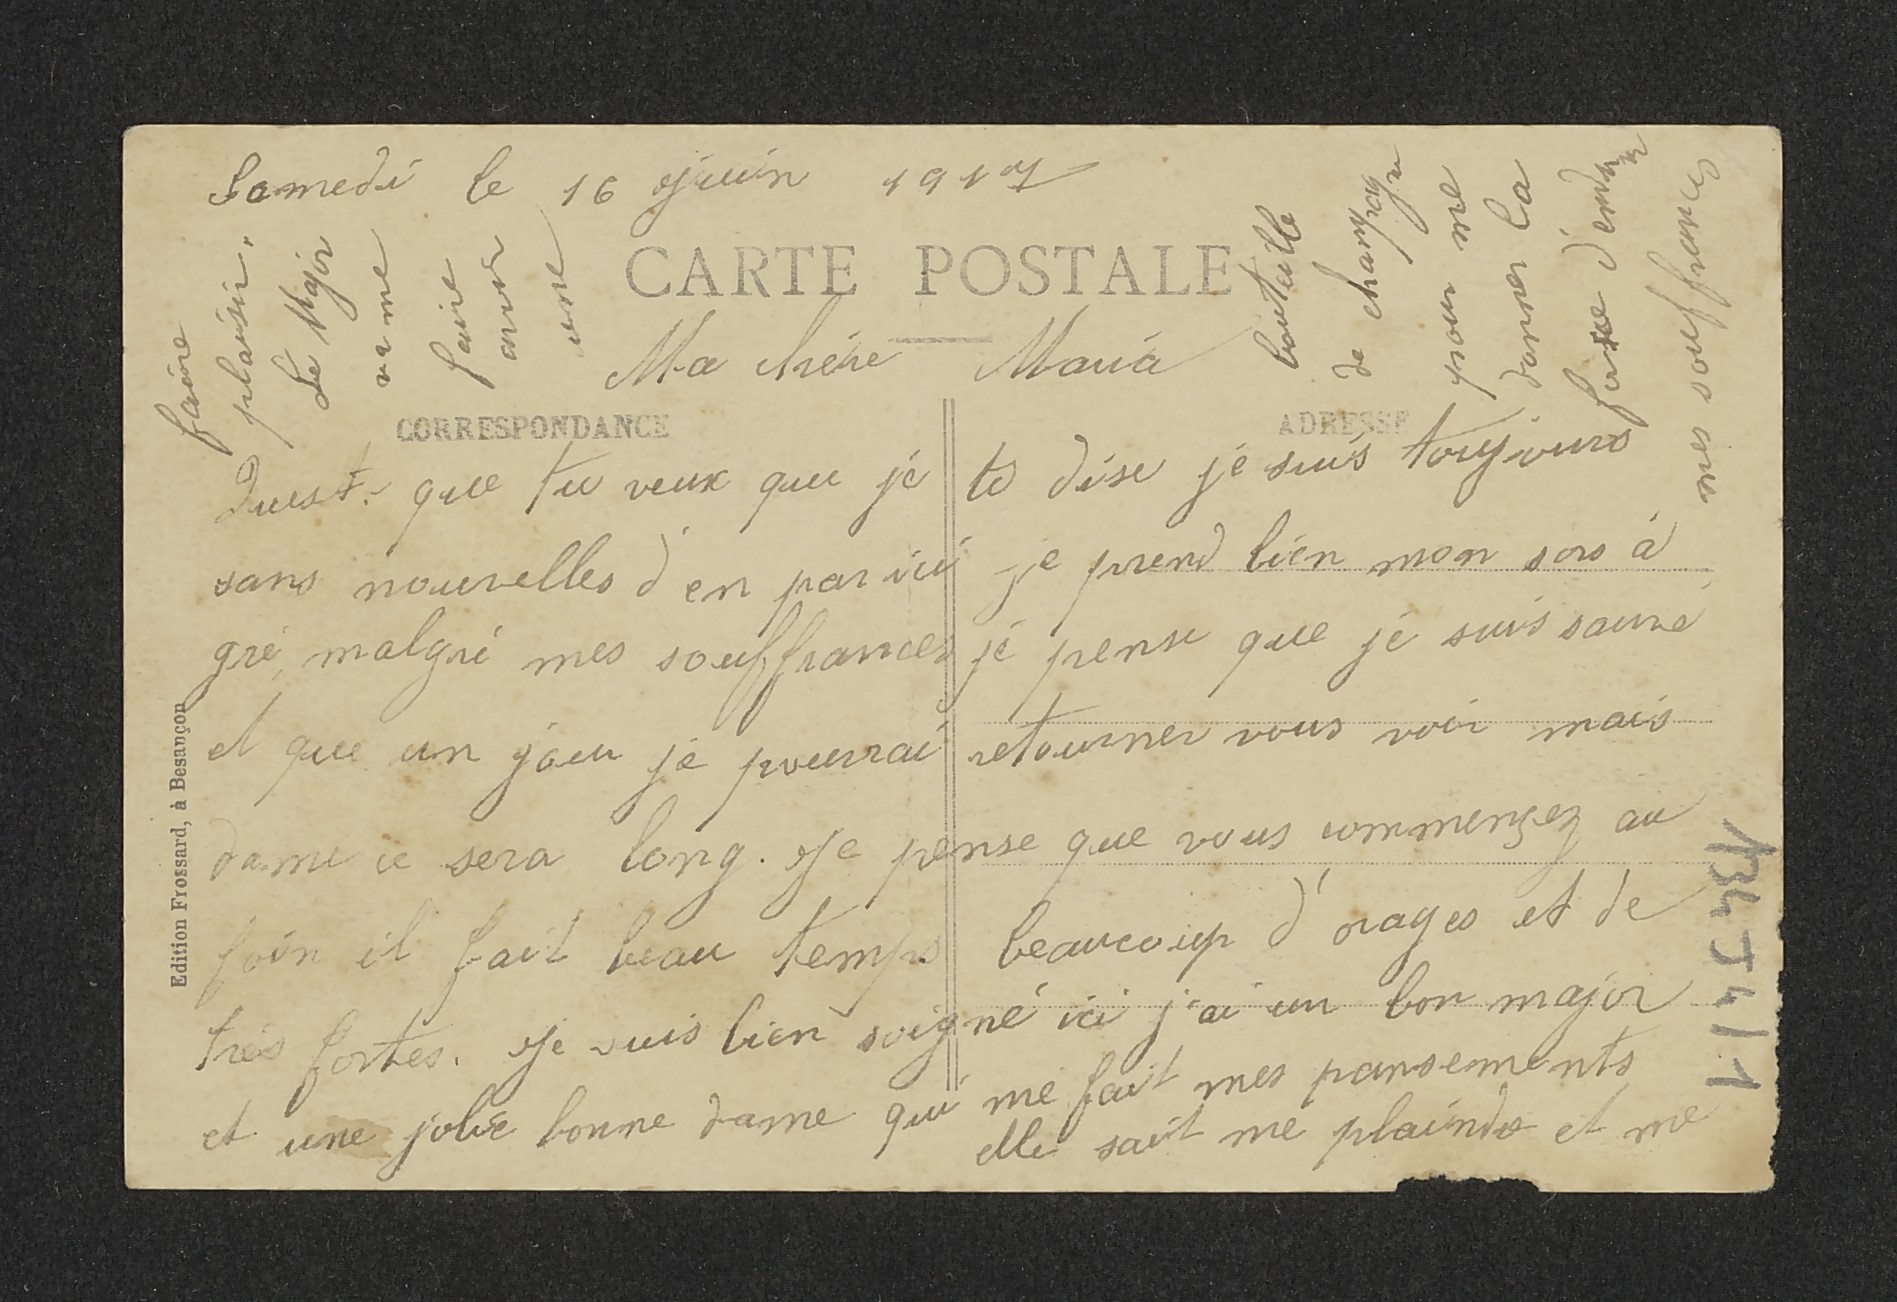 Samedi le 16 juin 1917
CARTE POSTALE
Ma chère Maria
CORRESPONDANCE
ADRESSE
Quest. que tu veux que je te dise je suis toujours
sans nouvelles d'en par ici je prend bien mon sors à
gré, malgré mes souffrances je pense que je suis sauvé
et que un jour je pourrai retourner vous voir mais
dame ce sera long. Je pense que vous commençez au
foin il fait beau temps beaucoup d'orages et de
très fortes. Je suis bien soigné ici j'ai un bon major
et une jolie bonne dame qui me fait mes pansements
elle sait me plaindre et me
faire
plaisir.
Le Major
va me
faire
avoir
une
bouteille
de champagne
pour me
donner la
force d'en
mes souffrances
Edition Frossard, à Besançon
134 J 4/1